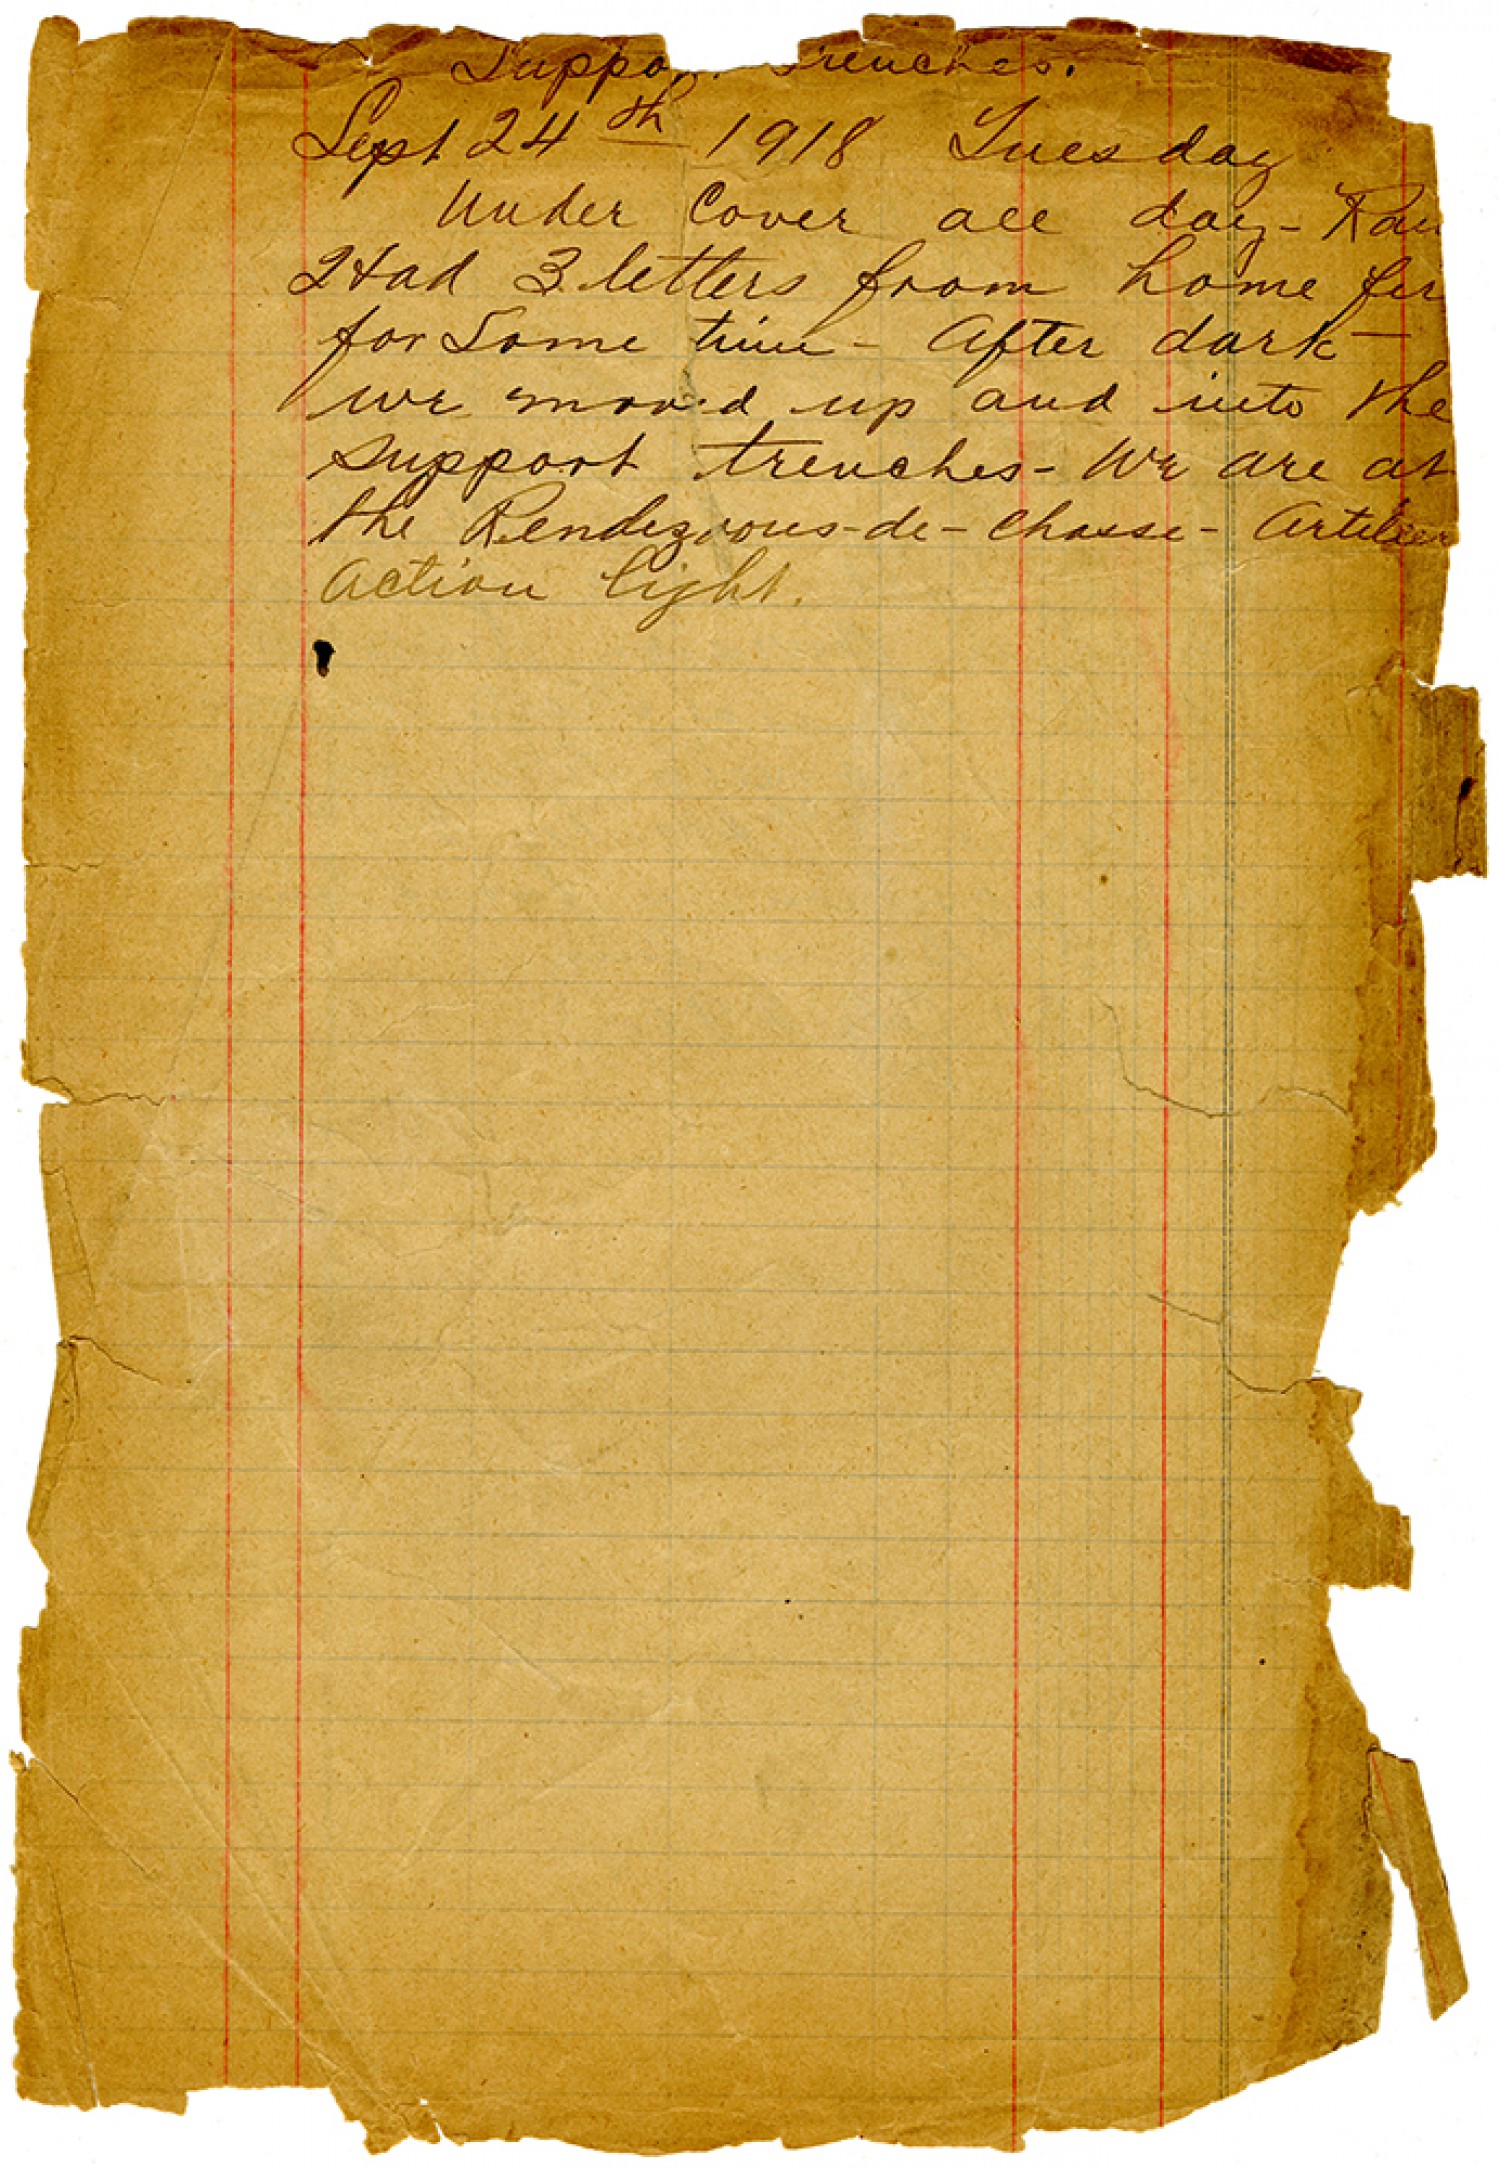 Support Trenches.
Sept 24th 1918 Tuesday
Under Cover all day - Rain
Had 3 letters from home
for Some time - After dark -
we moved up and into the
support trenches - We are at
the Rendezvous-de-Chasse - Artiller
Action light.